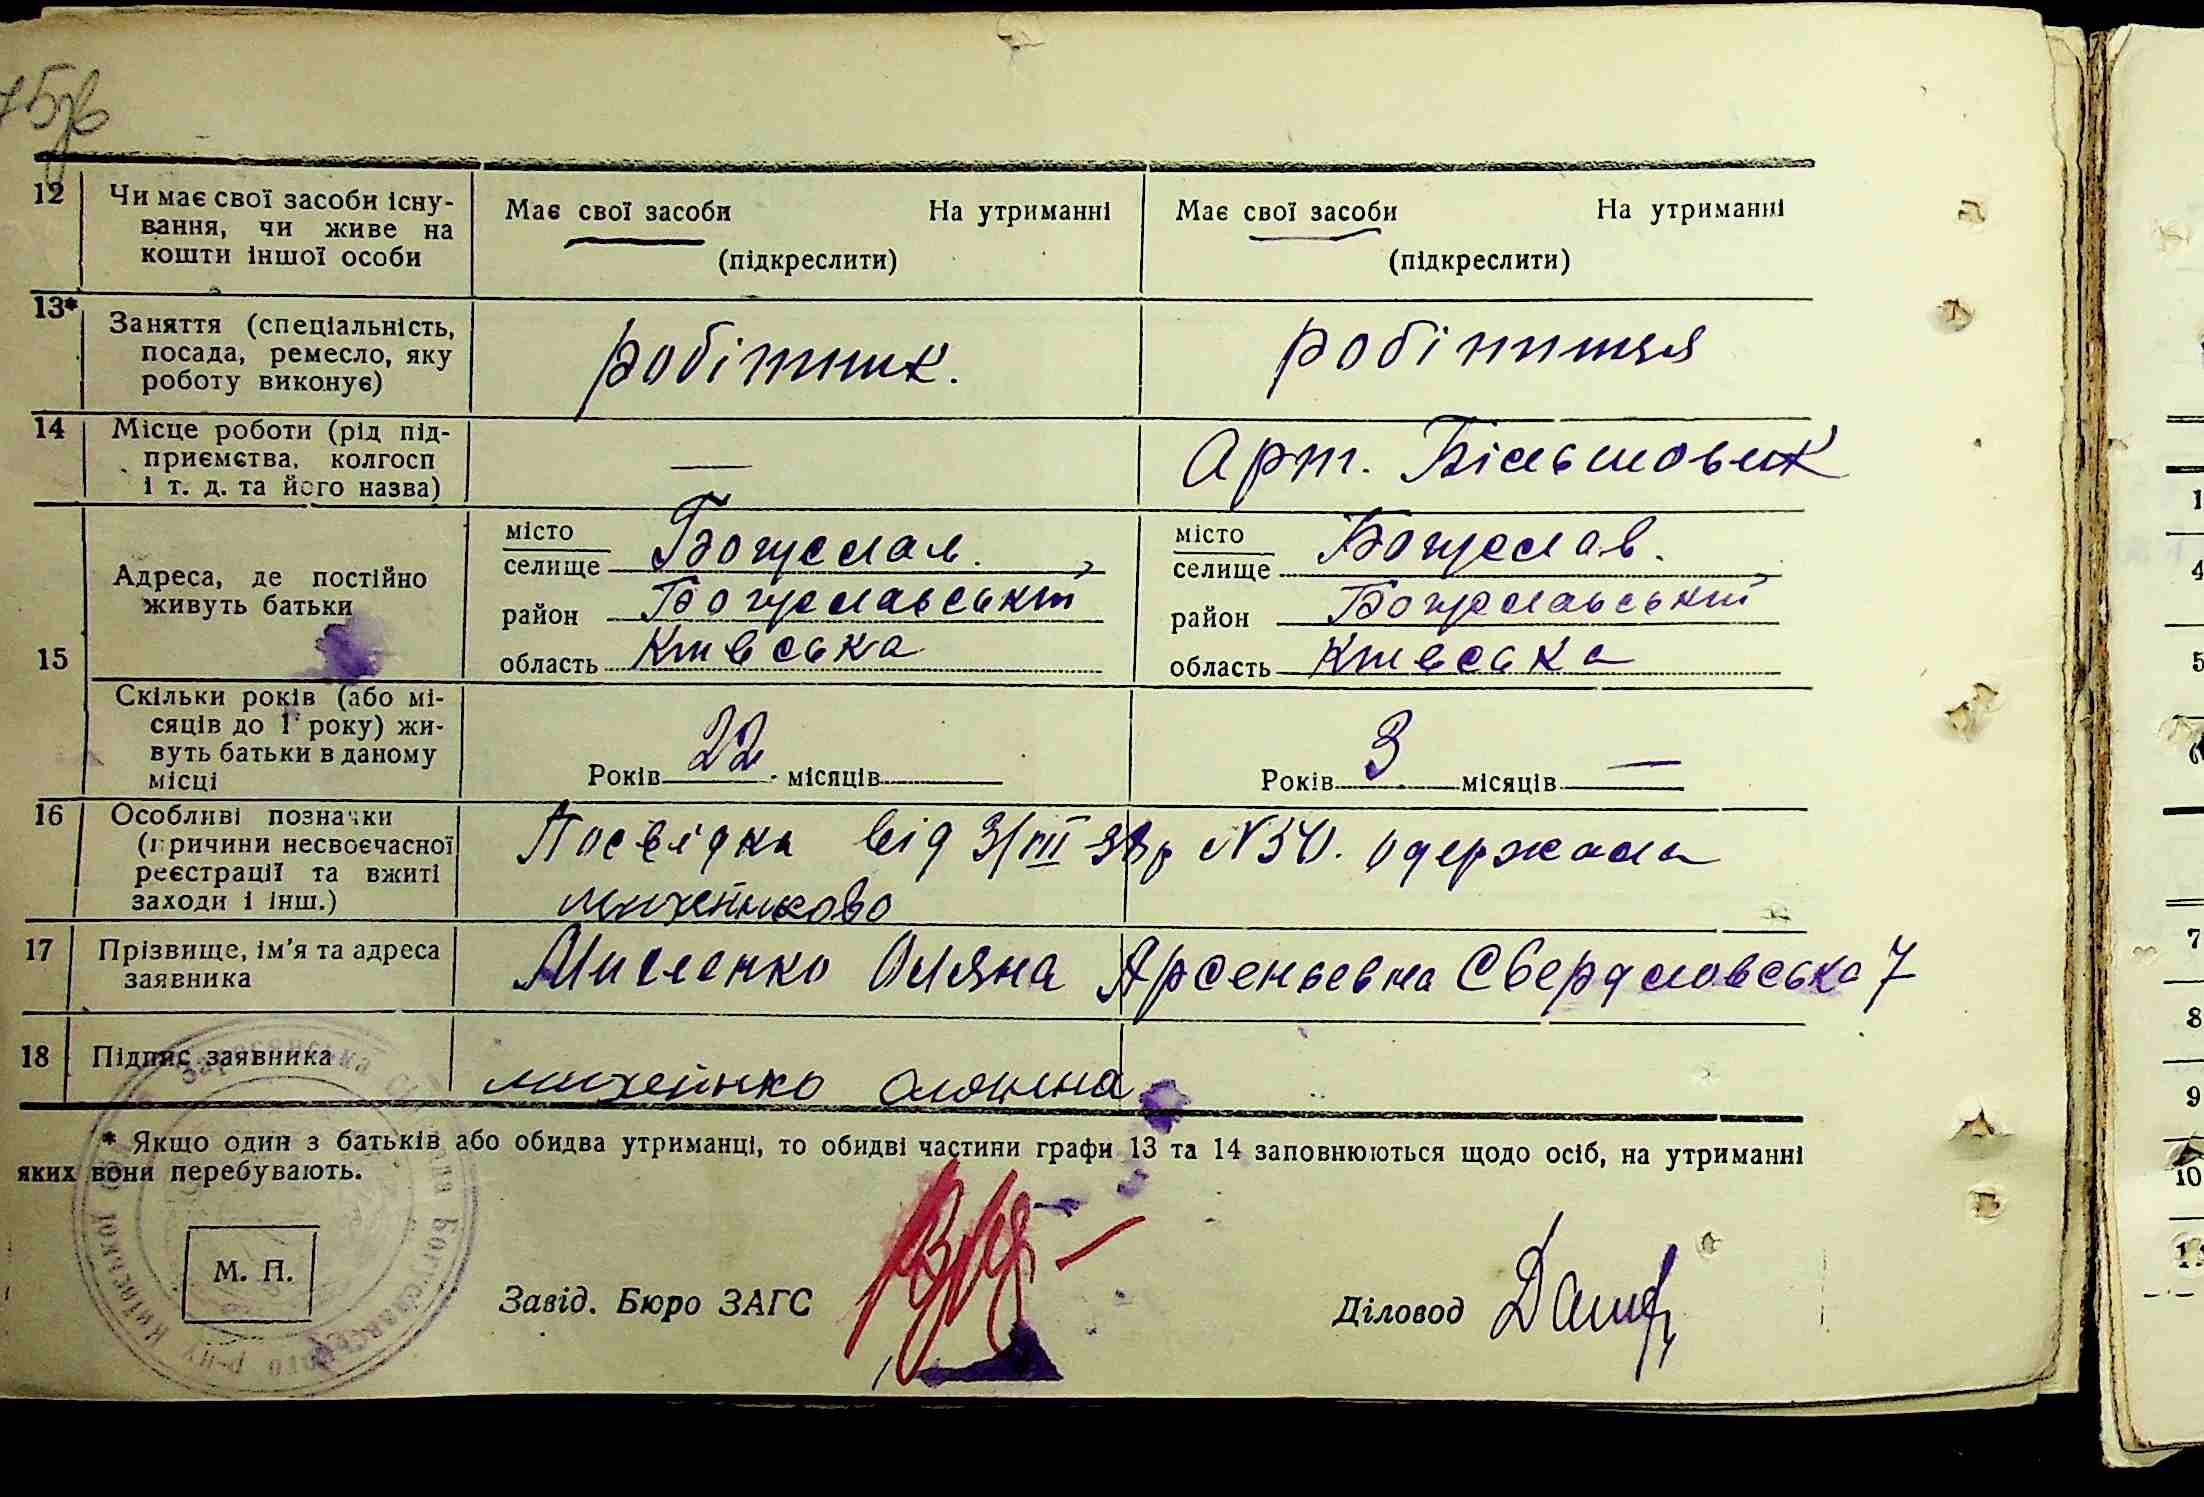 12 Чи має свої засоби існу-
вання, чи живе на
кошти іншої особи
Має свої засоби На утриманні
(підкреслити)
Має свої засоби На утриманні
(підкреслити)
13* Заняття (спеціальність,
посада, ремесло, яку
роботу виконує)
робітник.
робітниця
14 Місце роботи (рід під-
приємства, колгосп
і т. д. та його назва)
—
Арт. Більшовик
15 Адреса, де постійно
живуть батьки
місто
селище Богуслав.,
район Богуславський
область Київська
місто
селище Богуслав.,
район Богуславський
область Київська
Скільки років (або мі-
сяців до 1 року) жи-
вуть батьки в даному
місці
Років 22 місяців
Років 3 місяців —
16 Особливі позначки
(причини несвоєчасної
реєстрації та вжиті
заходи і інш.)
Посвідка від 3/III-38р N 50. Одержала
17 Прізвище, ім'я та адреса
заявника
Оляна Арсеньевна Свердловська 7
18 Підпис заявника
* Якщо один з батьків або обидва утриманці, то обидві частини графи 13 та 14 заповнюються щодо осіб, на утриманні
яких вони перебувають.
М. П.
Завід. Бюро ЗАГС
Діловод